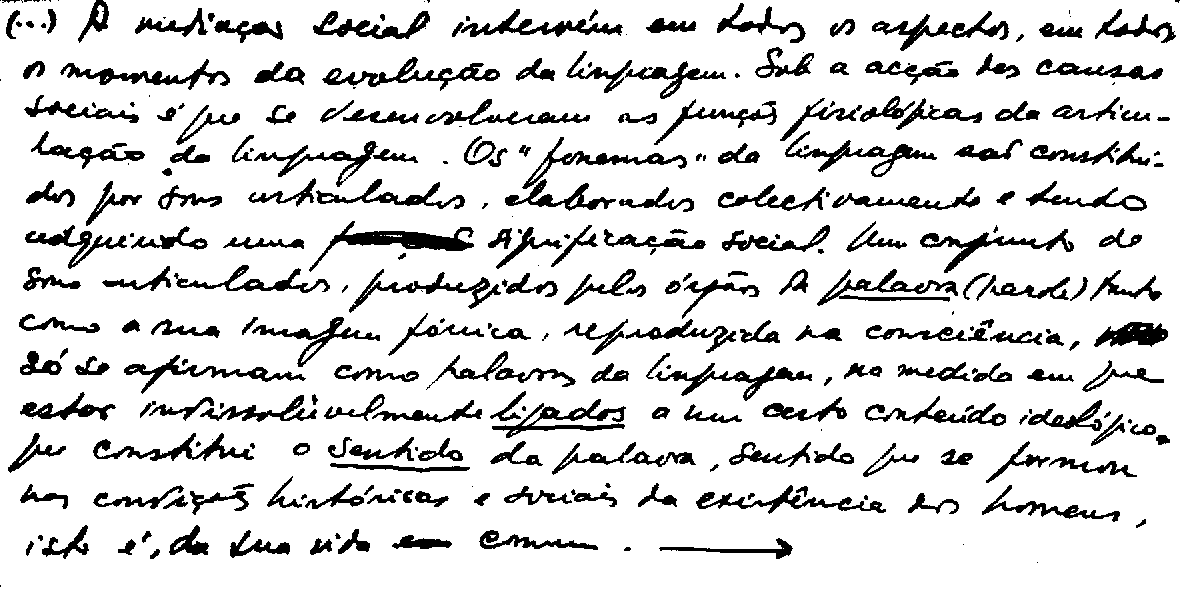 (...) A mediação social intervém em todos os aspectos, em todos
os momentos da evolução da linguagem. Sob a acção das causas
sociais é que se desenvolveram as funções fisiológicas da articu-
lação da linguagem. Os "fonemas" da linguagem são constituí-
dos por sons articulados, elaborados colectivamente e tendo
adquirido uma significação social. Um conjunto de
sons articulados, produzidos pelos órgãos da palavra (parole) tanto
como a sua imagem fónica, reproduzida na consciência,
só se afirmam como palavras da linguagem, na medida em que
estão indissolùvelmente ligados a um certo conteúdo ideológico,
que constitui o sentido da palavra, sentido que se formou
nas condições históricas e sociais da existência dos homens,
isto é, da sua vida em comum. →